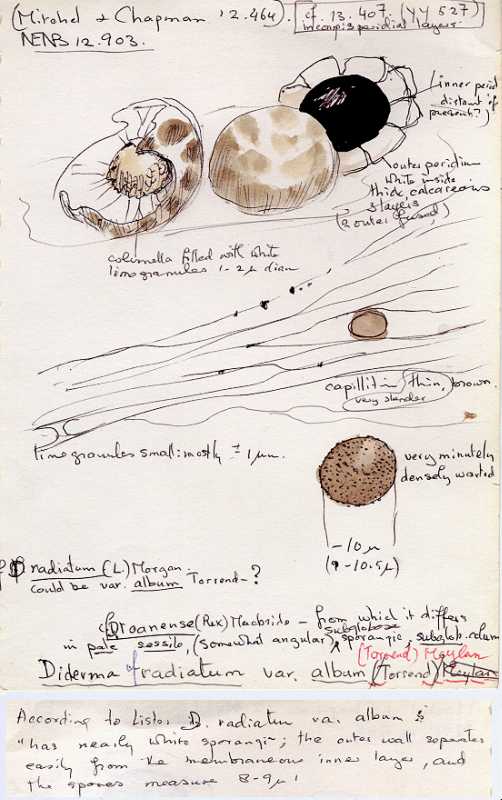 (Mitchel & Chapman '2.464). cf. 13.407. (YY 527)
NENB 12.903.
incompis peridial layers
inner perid
distant (if
present?)
outer peridium
white inside
thick calcareous
3 layers
(2 outer fused)
columella filled with white
lime granules 1-2 μ diam
capillitium thin, brown.
very slender
lime granules small: mostly ± 1 μm.
very minutely
densely warted
-10 μ
(9-10.5 μ)
cf D radiatum (L) Morgan.
could be var. album Torrend-?
cf D roanense (Rex) Macbride - from which it differs
subglobose
in pale sessile, (somewhat angular) sporangia, subglob. colum
(Torrend) Meylan
Diderma radiatum var. album (Torrend) Meylan
According to Lister D. radiatum va. album is
"has nearly white sporangia; the outer wall separates
easily from the membraneous inner layer, and
the spores measure 8-9 μ'